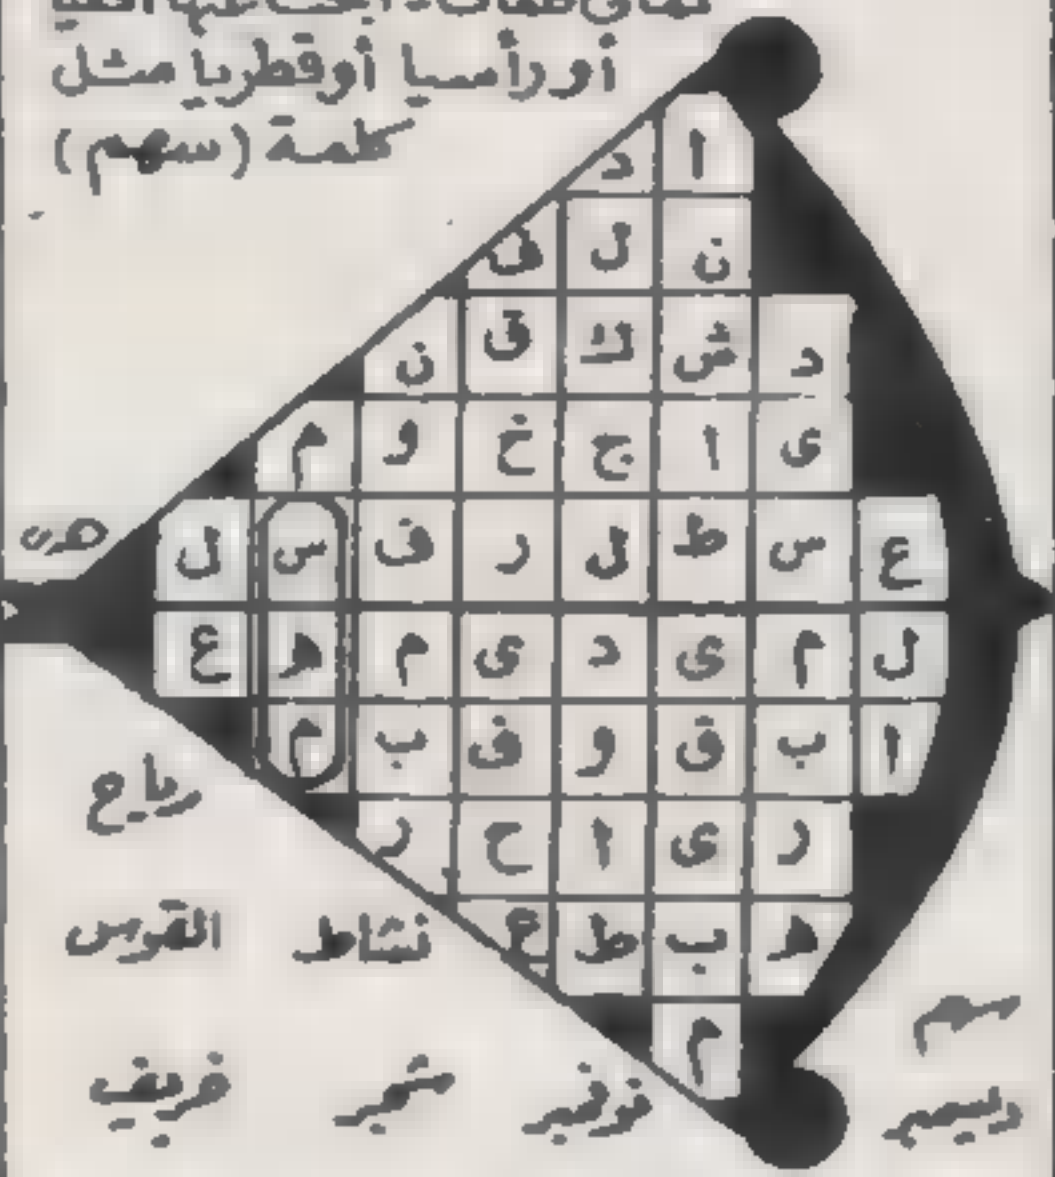 ثماني كلمات، ابحث عنها افقيا
أو رأسيا أو قطريا مثل
كلمة (سهم)
ا د
ن ل ف
د ش ك ق ن
ى ا ج خ و م
ع س ط ل ر ف س ل
ل م ى د ى م ه ع
ا ب ق و ف ب م
ر ى ا ح ر
ه ب ط ع
م
رياح
نشاط القوس
سهم
ديسمبر نوفمبر خريف